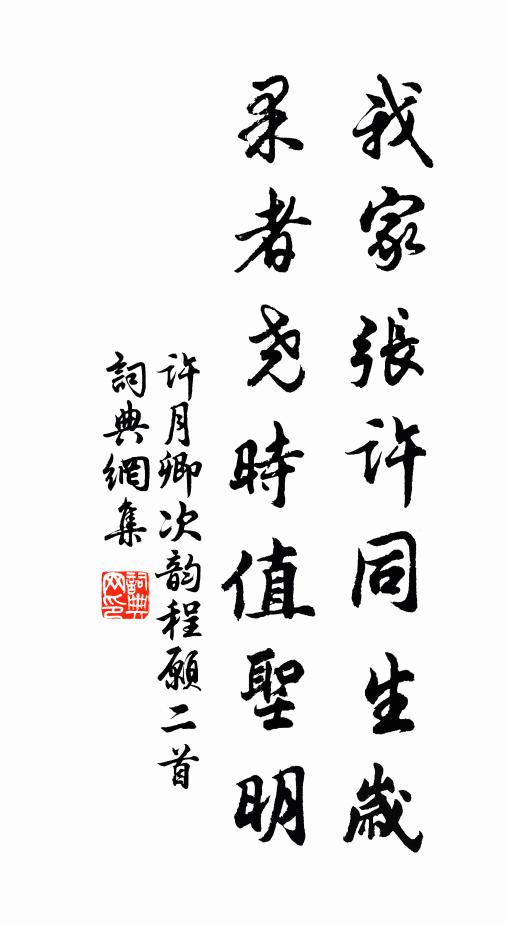 我家張許同生歲
果者尧時值聖明
许月卿次韵程願二首
詞典網集
詞典
网印